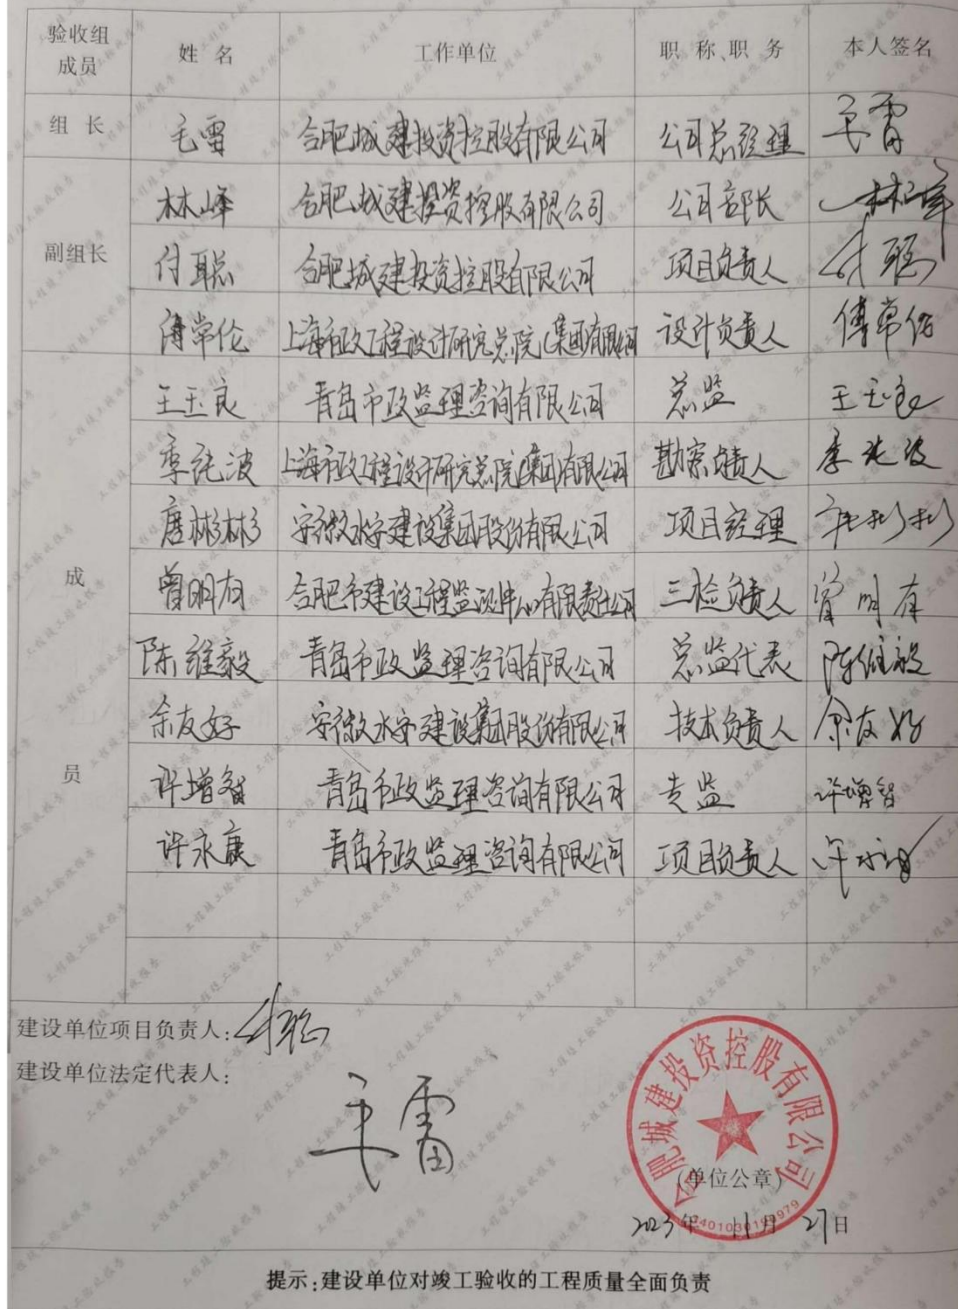 验收组成员 姓 名 工作单位 职 称、职 务 本人签名
组 长 毛雷 合肥城建投资控股有限公司 公司总经理 毛雷
副组长
林峰 合肥城建投资控股有限公司 公司部长 林峰
付聪 合肥城建投资控股有限公司 项目负责人 付聪
傅常伦 上海市政工程设计研究总院(集团)有限公司 设计负责人 傅常伦
成 员
王玉良 青岛市政监理咨询有限公司 总监 王玉良
季纯波 上海市政工程设计研究总院(集团)有限公司 勘察负责人 季纯波
唐彬彬 安徽水安建设集团股份有限公司 项目经理
曾明有 合肥市建设工程监测中心有限责任公司 三检负责人 曾明有
陈维毅 青岛市政监理咨询有限公司 总监代表 陈维毅
余友好 安徽水安建设集团股份有限公司 技术负责人 余友好
许增智 青岛市政监理咨询有限公司 专监 许增智
许永康 青岛市政监理咨询有限公司 项目负责人 许永康
建设单位项目负责人: 付聪
建设单位法定代表人:
毛雷
合肥城建投资控股有限公司
(单位公章)
2023年 11月 27日
提示:建设单位对竣工验收的工程质量全面负责
工程竣工验收报告